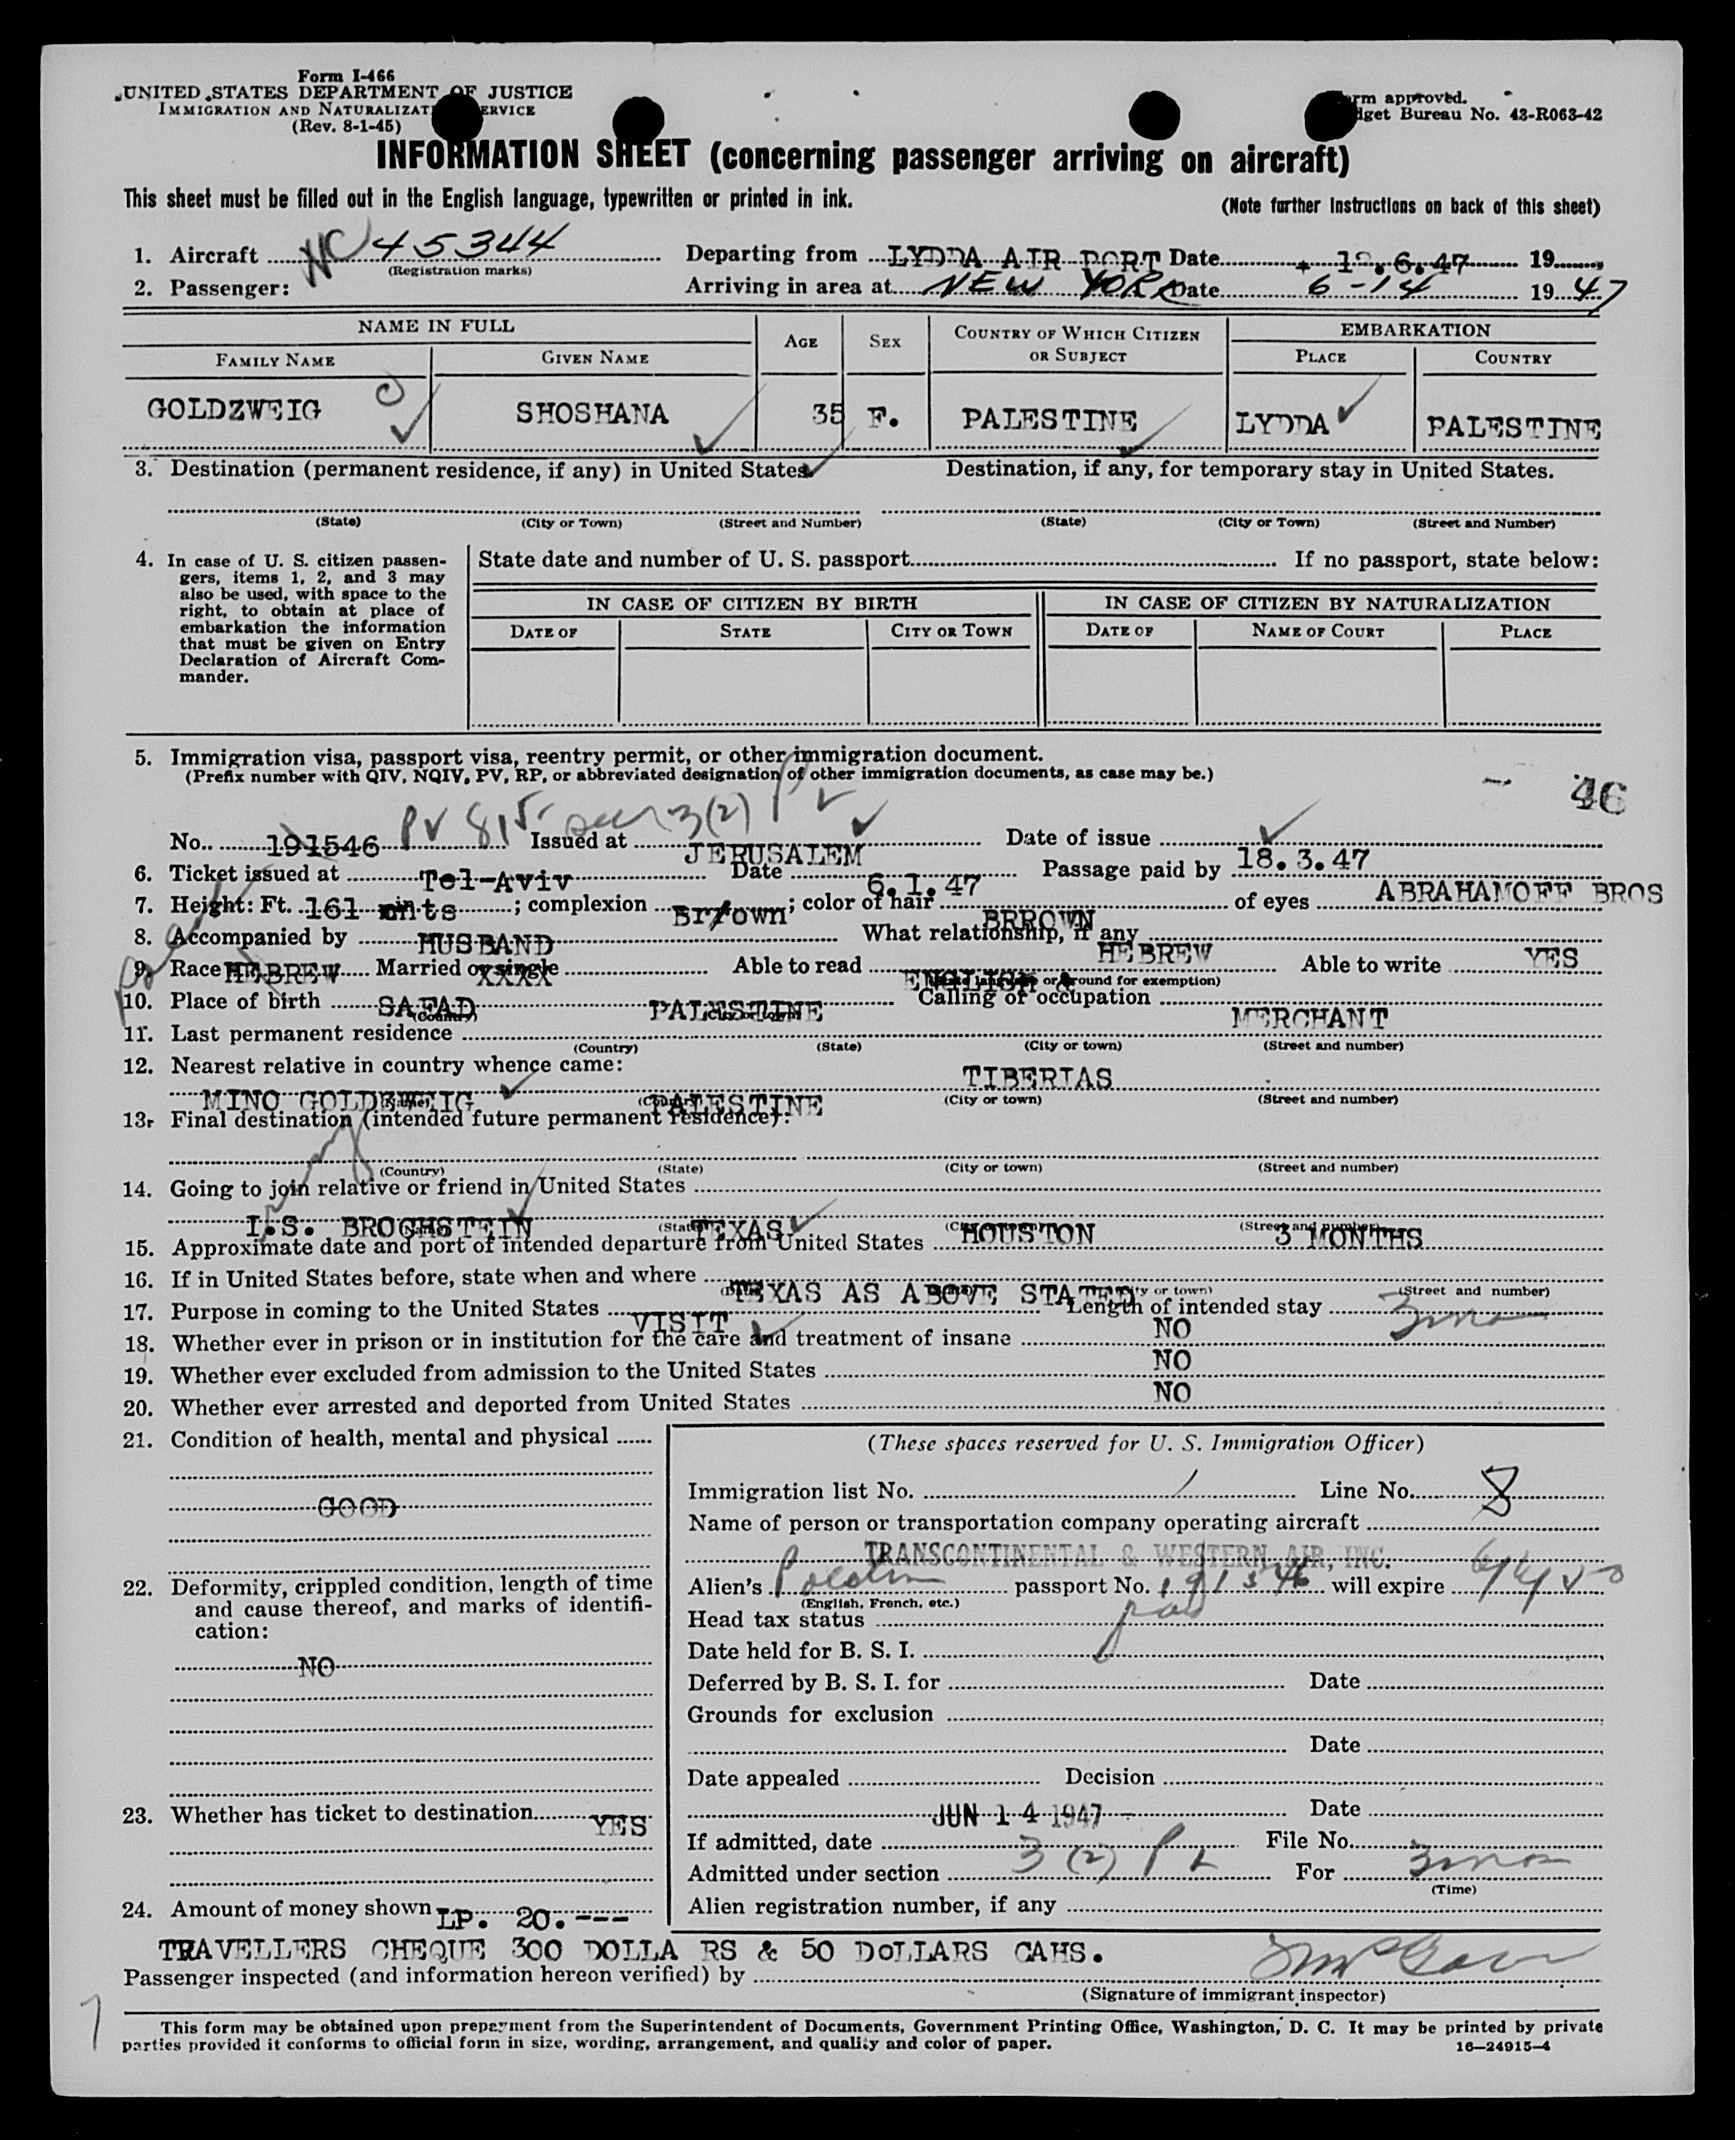 Form I-466
UNITED STATES DEPARTMENT OF JUSTICE
IMMIGRATION AND NATURALIZATI ERVICE
(Rev. 8-1-45)
rm approved.
dget Bureau No. 43-R063-42
INFORMATION SHEET (concerning passenger arriving on aircraft)
This sheet must be filled out in the English language, typewritten or printed in ink.
(Note further instructions on back of this sheet)
1. Aircraft NC 45344 Departing from LYDDA AIR PORT Date 12.6.47 19
(Registration marks)
2. Passenger: Arriving in area at NEW YORK Date 6-14 1947
NAME IN FULL
FAMILY NAME GIVEN NAME AGE SEX COUNTRY OF WHICH CITIZEN OR SUBJECT EMBARKATION PLACE COUNTRY
GOLDZWEIG SHOSHANA 35 F. PALESTINE LYDDA PALESTINE
3. Destination (permanent residence, if any) in United States Destination, if any, for temporary stay in United States.
(State) (City or Town) (Street and Number) (State) (City or Town) (Street and Number)
4. In case of U. S. citizen passengers, items 1, 2, and 3 may also be used, with space to the right, to obtain at place of embarkation the information that must be given on Entry Declaration of Aircraft Commander.
State date and number of U. S. passport If no passport, state below:
IN CASE OF CITIZEN BY BIRTH IN CASE OF CITIZEN BY NATURALIZATION
DATE OF STATE CITY OR TOWN DATE OF NAME OF COURT PLACE
5. Immigration visa, passport visa, reentry permit, or other immigration document.
(Prefix number with QIV, NQIV, PV, RP, or abbreviated designation of other immigration documents, as case may be.)
46
No. 191546 PV 815 sec 3(2) Issued at JERUSALEM Date of issue 18.3.47
6. Ticket issued at Tel-Aviv Date 6.1.47 Passage paid by ABRAHAMOFF BROS
7. Height: Ft. 161 mnts; complexion Brrown; color of hair BRROWN of eyes
8. Accompanied by HUSBAND What relationship, if any
9. Race HEBREW Married or single XXXX Able to read ENGLISH & HEBREW Able to write YES
(State language or ground for exemption)
10. Place of birth SAFAD PALESTINE Calling or occupation MERCHANT
(Country) (City or town)
11. Last permanent residence TIBERIAS
(Country) (State) (City or town) (Street and number)
12. Nearest relative in country whence came:
MINO GOLDZWEIG PALESTINE
(Name) (Country) (City or town) (Street and number)
13. Final destination (intended future permanent residence):
(Country) (State) (City or town) (Street and number)
14. Going to join relative or friend in United States
I.S. BROCHSTEIN TEXAS HOUSTON
(Name) (State) (City or town) (Street and number)
15. Approximate date and port of intended departure from United States 3 MONTHS
16. If in United States before, state when and where TEXAS AS ABOVE STATED
(Date) (City or town) (Street and number)
17. Purpose in coming to the United States VISIT Length of intended stay 3 mos
18. Whether ever in prison or in institution for the care and treatment of insane NO
19. Whether ever excluded from admission to the United States NO
20. Whether ever arrested and deported from United States NO
21. Condition of health, mental and physical
GOOD
22. Deformity, crippled condition, length of time and cause thereof, and marks of identification:
NO
23. Whether has ticket to destination YES
24. Amount of money shown LP. 20.---
(These spaces reserved for U. S. Immigration Officer)
Immigration list No. 1 Line No. 8
Name of person or transportation company operating aircraft
TRANSCONTINENTAL & WESTERN AIR, INC.
Alien's passport No. 191546 will expire
(English, French, etc.)
Head tax status paid
Date held for B. S. I.
Deferred by B. S. I. for Date
Grounds for exclusion
Date
Date appealed Decision
Date
JUN 14 1947
If admitted, date File No.
Admitted under section 3 (2) For 3 mos
(Time)
Alien registration number, if any
TRAVELLERS CHEQUE 300 DOLLA RS & 50 DOLLARS CAHS.
Passenger inspected (and information hereon verified) by
(Signature of immigrant inspector)
This form may be obtained upon prepayment from the Superintendent of Documents, Government Printing Office, Washington, D. C. It may be printed by private
parties provided it conforms to official form in size, wording, arrangement, and quality and color of paper.
16—24915-4